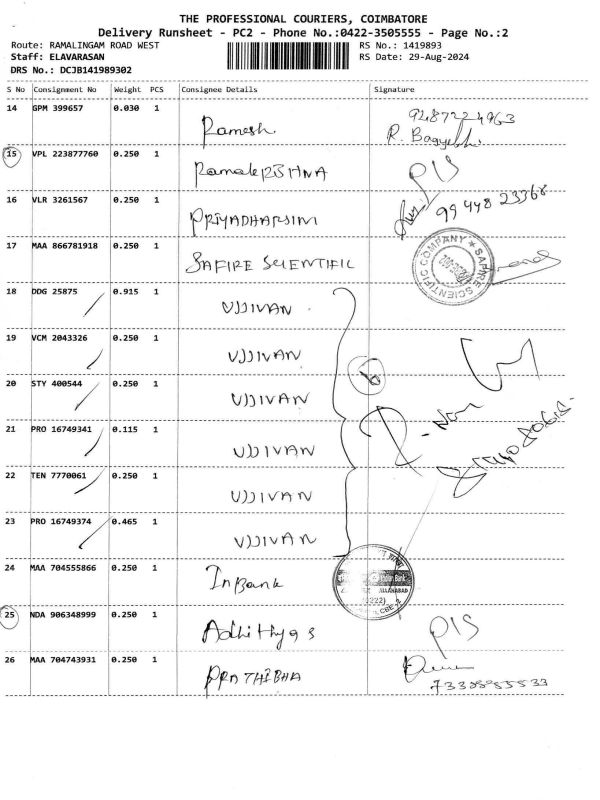 THE PROFESSIONAL COURIERS, COIMBATORE
Delivery Runsheet - PC2 - Phone No.:0422-3505555 - Page No.:2
Route: RAMALINGAM ROAD WEST RS No.: 1419893
Staff: ELAVARASAN RS Date: 29-Aug-2024
DRS No.: DCJB141989302
S No Consignment No Weight PCS Consignee Details Signature
14 GPM 399657 0.030 1 Ramesh
R.
15 VPL 223877760 0.250 1 RamakRISHNA
16 VLR 3261567 0.250 1 PRIYADHARSINI 99448 23368
17 MAA 866781918 0.250 1 SAFIRE SCIENTIFIC SAFIRE SCIENTIFIC COMPANY
18 DDG 25875 0.915 1 UJJIVAN
19 VCM 2043326 0.250 1 UJJIVAN
20 STY 400544 0.250 1 UJJIVAN
6
21 PRO 16749341 0.115 1 UJJIVAN
22 TEN 7770061 0.250 1 UJJIVAN
23 PRO 16749374 0.465 1 UJJIVAN
24 MAA 704555866 0.250 1 InBank Indian Bank
ALLAHABAD
25 NDA 906348999 0.250 1 Adhithya s
26 MAA 704743931 0.250 1 PRATHIBHA